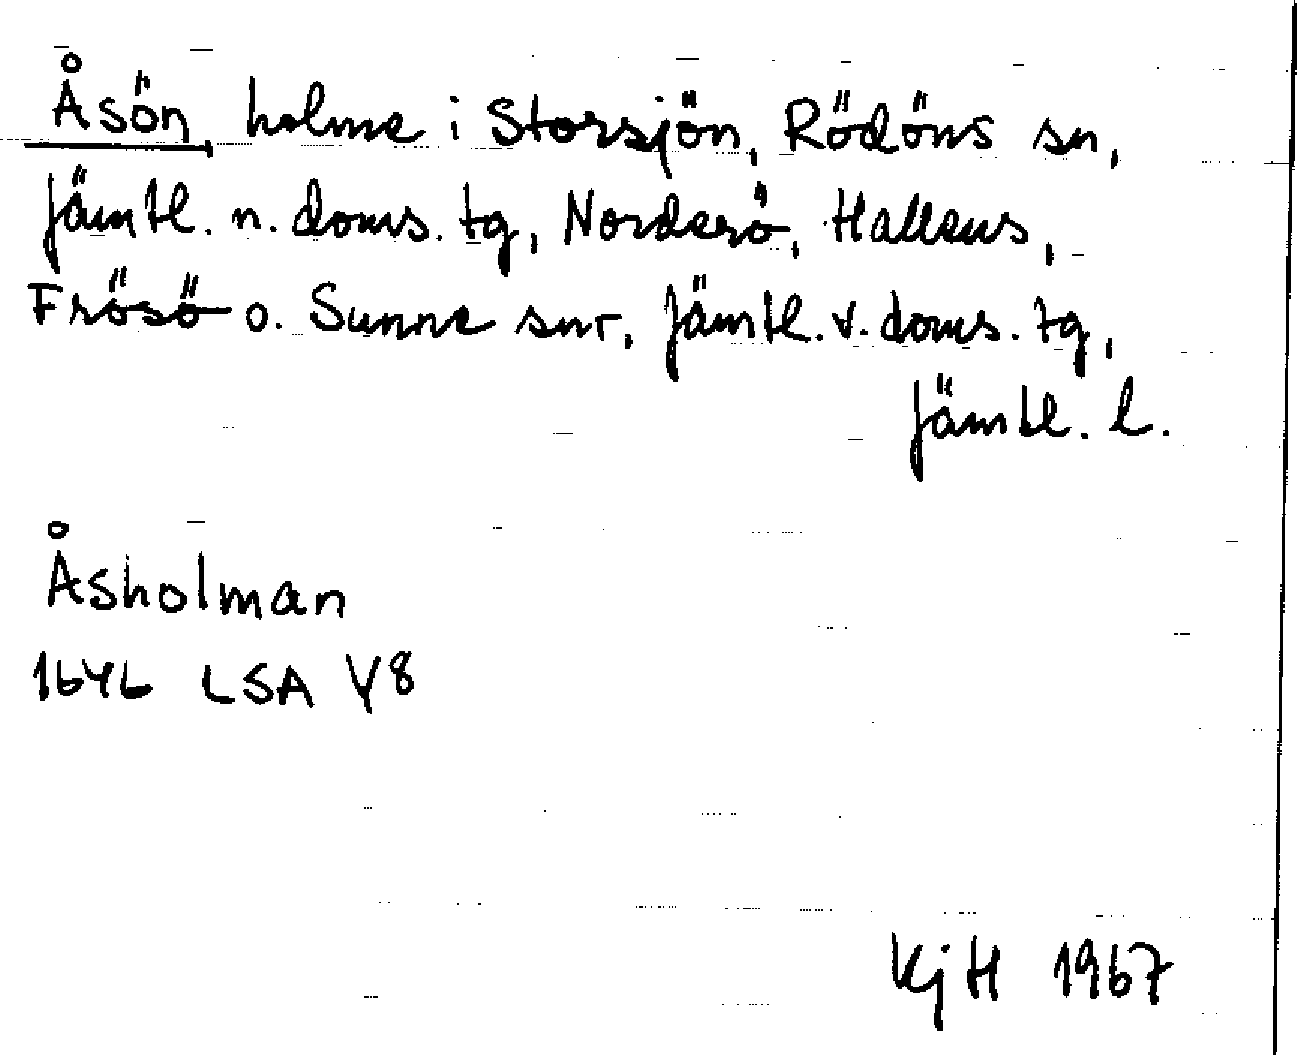 Åsön, holme i Storsjön, Rödöns sn,
Jämtl. n. doms. tg, Norderö, Hallens,
Frösö o. Sunne snr, Jämtl. v. doms. tg,
Jämtl. l.
Åsholman
1646 LSA Y8
KjH 1967